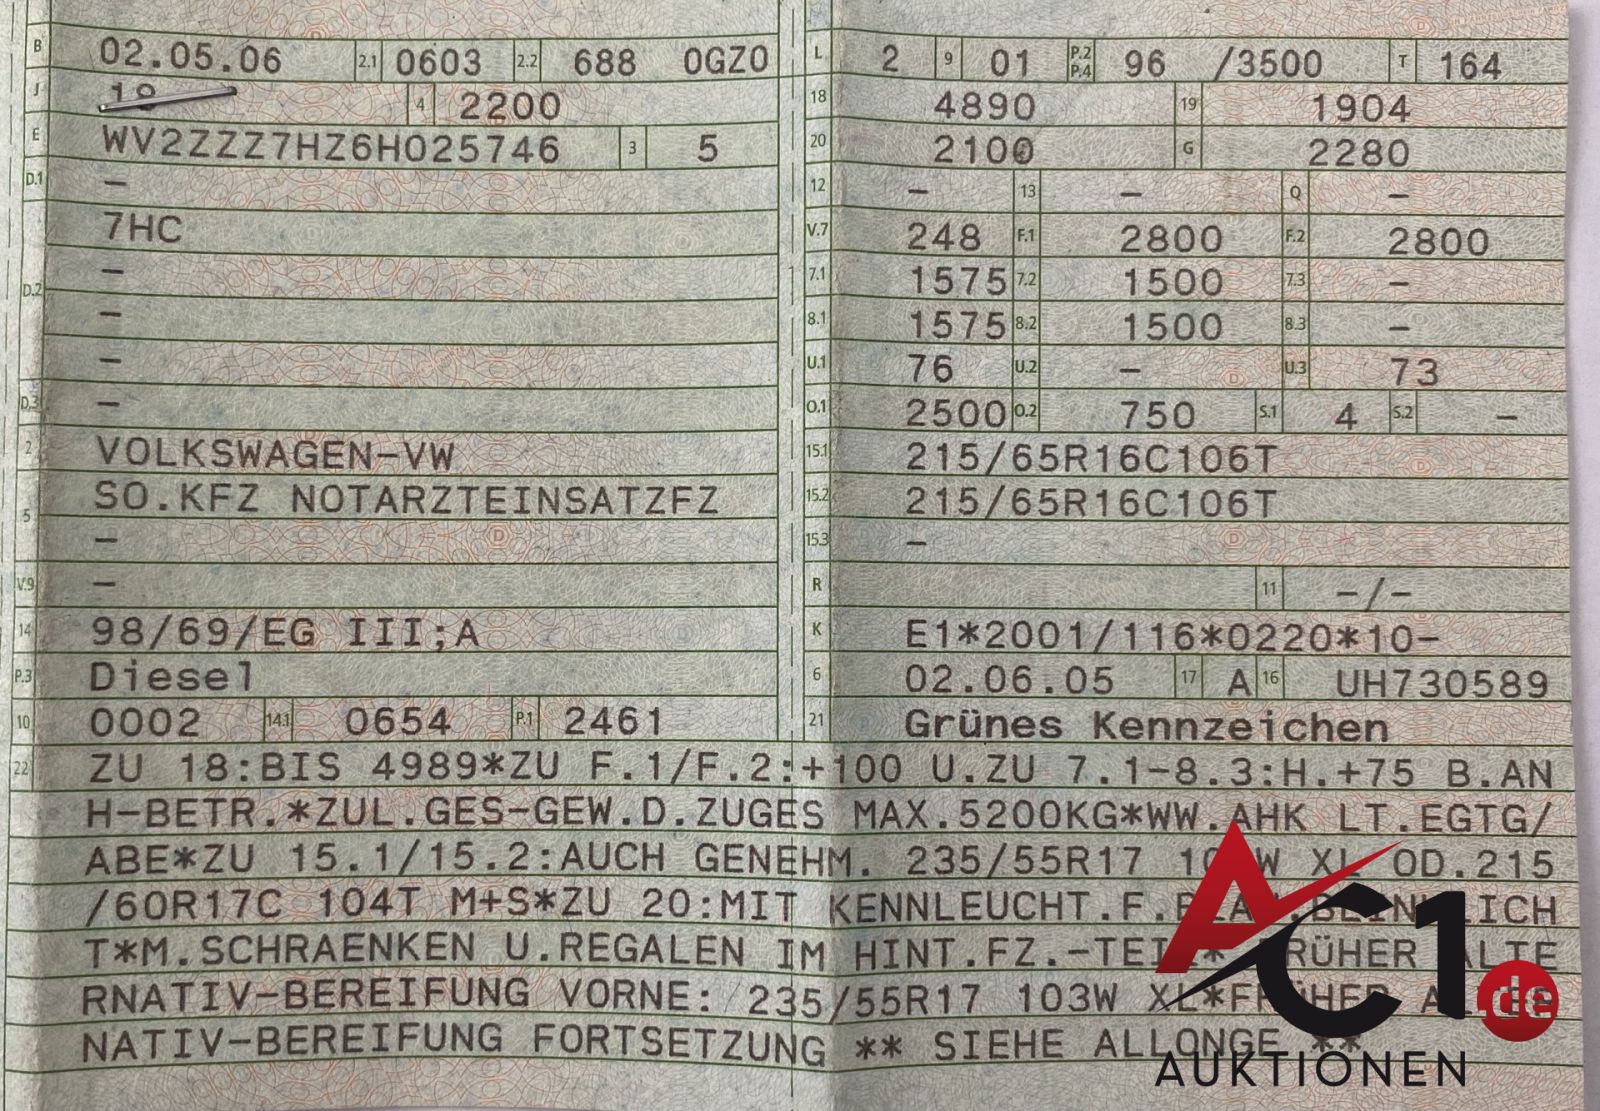 B 02.05.06 2.1 0603 2.2 688 0GZ0 L 2 9 01 P.2 P.4 96 /3500 T 164
J 18 4 2200 18 4890 19 1904
E WV2ZZZ7HZ6H025746 3 5 20 2100 G 2280
D.1 – 12 – 13 – Q –
7HC V.7 248 F.1 2800 F.2 2800
D.2 – 7.1 1575 7.2 1500 7.3 –
– 8.1 1575 8.2 1500 8.3 –
– U.1 76 U.2 – U.3 73
D.3 – O.1 2500 O.2 750 S.1 4 S.2 –
2 VOLKSWAGEN-VW 15.1 215/65R16C106T
5 SO.KFZ NOTARZTEINSATZFZ 15.2 215/65R16C106T
– 15.3 –
V.9 – R 11 –/–
14 98/69/EG III;A K E1*2001/116*0220*10-
P.3 Diesel 6 02.06.05 17 A 16 UH730589
10 0002 14.1 0654 P.1 2461 21 Grünes Kennzeichen
22 ZU 18:BIS 4989*ZU F.1/F.2:+100 U.ZU 7.1-8.3:H.+75 B.AN
H-BETR.*ZUL.GES-GEW.D.ZUGES MAX.5200KG*WW.AHK LT.EGTG/
ABE*ZU 15.1/15.2:AUCH GENEHM. 235/55R17 XL OD.215
/60R17C 104T M+S*ZU 20:MIT KENNLEUCHT.F.
T*M.SCHRAENKEN U.REGALEN IM HINT.FZ.-TEIL* FRÜHER ALTE
RNATIV-BEREIFUNG VORNE: 235/55R17 103W XL*FRÜHER
NATIV-BEREIFUNG FORTSETZUNG ** SIEHE ALLONGE **
AC1.de
AUKTIONEN